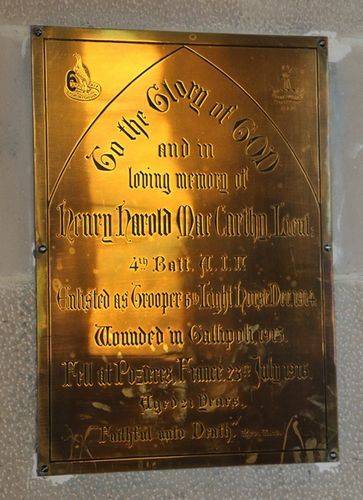 To the Glory of GOD
and in
loving memory of
Henry Harold Mac Carthy, Lieut.
4th Batt. A.I.F.
Enlisted as Trooper 5th Light Horse Dec. 1914.
Wounded in Gallipoli, 1915.
Fell at Pozieres, France 23rd July 1916.
Aged 21 Years.
"Faithful unto Death."